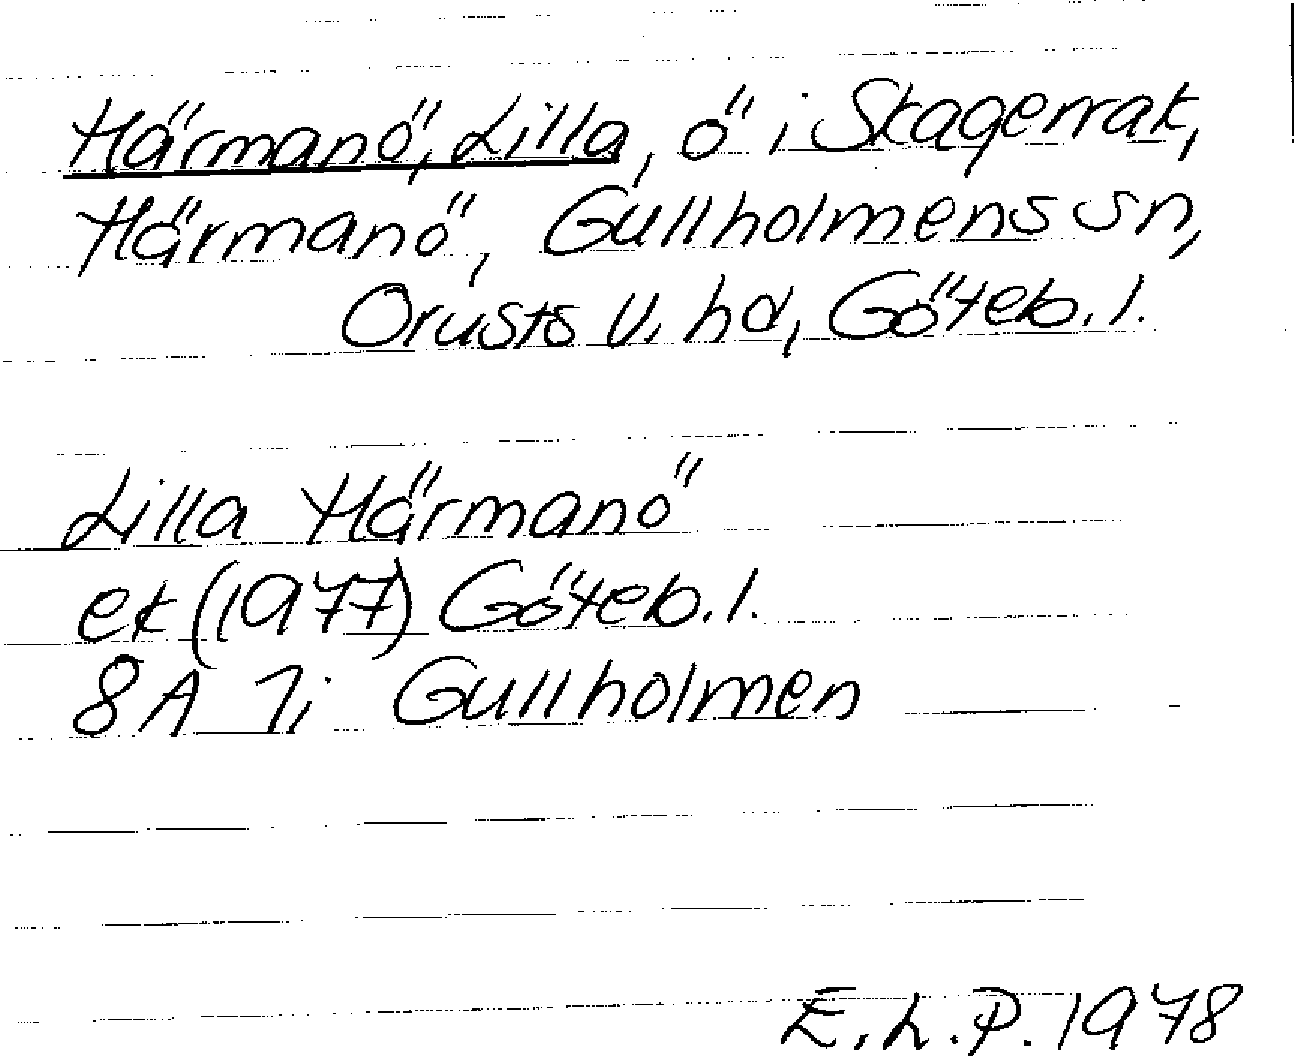 Härmanö, Lilla, ö i Skagerrak,
Härmanö, Gullholmens sn,
Orusts v. hd, Göteb. l.
Lilla Härmanö
ek (1977) Göteb. l.
8A 7i Gullholmen
E. L. P. 1978